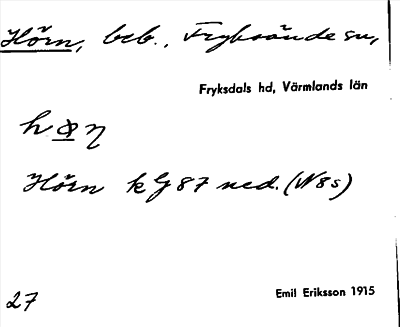 Hörn, beb., Fryksände sn,
Fryksdals hd, Värmlands län
Hörn kG 87 ned. (N8s)
27
Emil Eriksson 1915